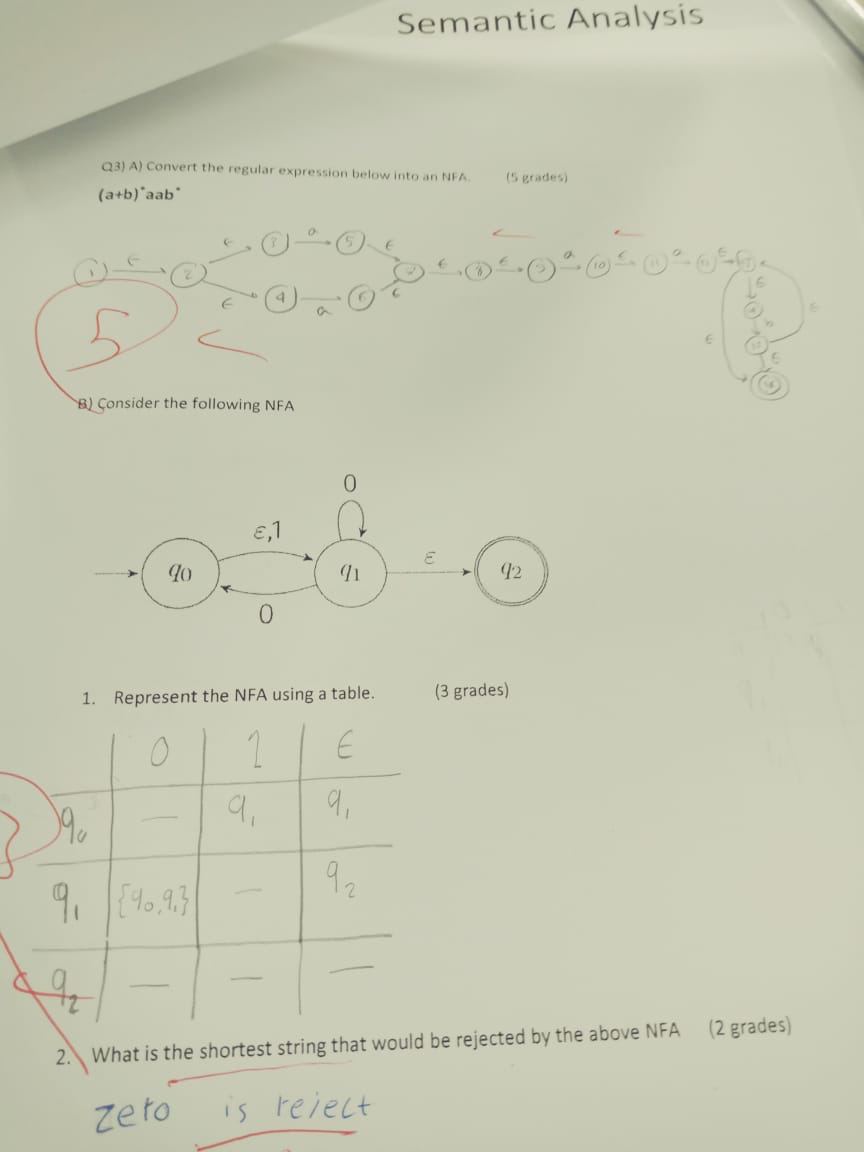 Semantic Analysis
Q3) A) Convert the regular expression below into an NFA. (5 grades)
(a+b)*aab*
1 ε 2 ε 3 a 5 ε
ε 4 a 6 ε
ε 8 ε 9 a 10 ε 11 a ε
ε
b
ε ε
ε
5
B) Consider the following NFA
0
ε,1
q0 q1 ε q2
0
1. Represent the NFA using a table. (3 grades)
0 1 ε
q0 — q1 q1
q1 {q0,q1} — q2
q2 — — —
2. What is the shortest string that would be rejected by the above NFA (2 grades)
zero is reject